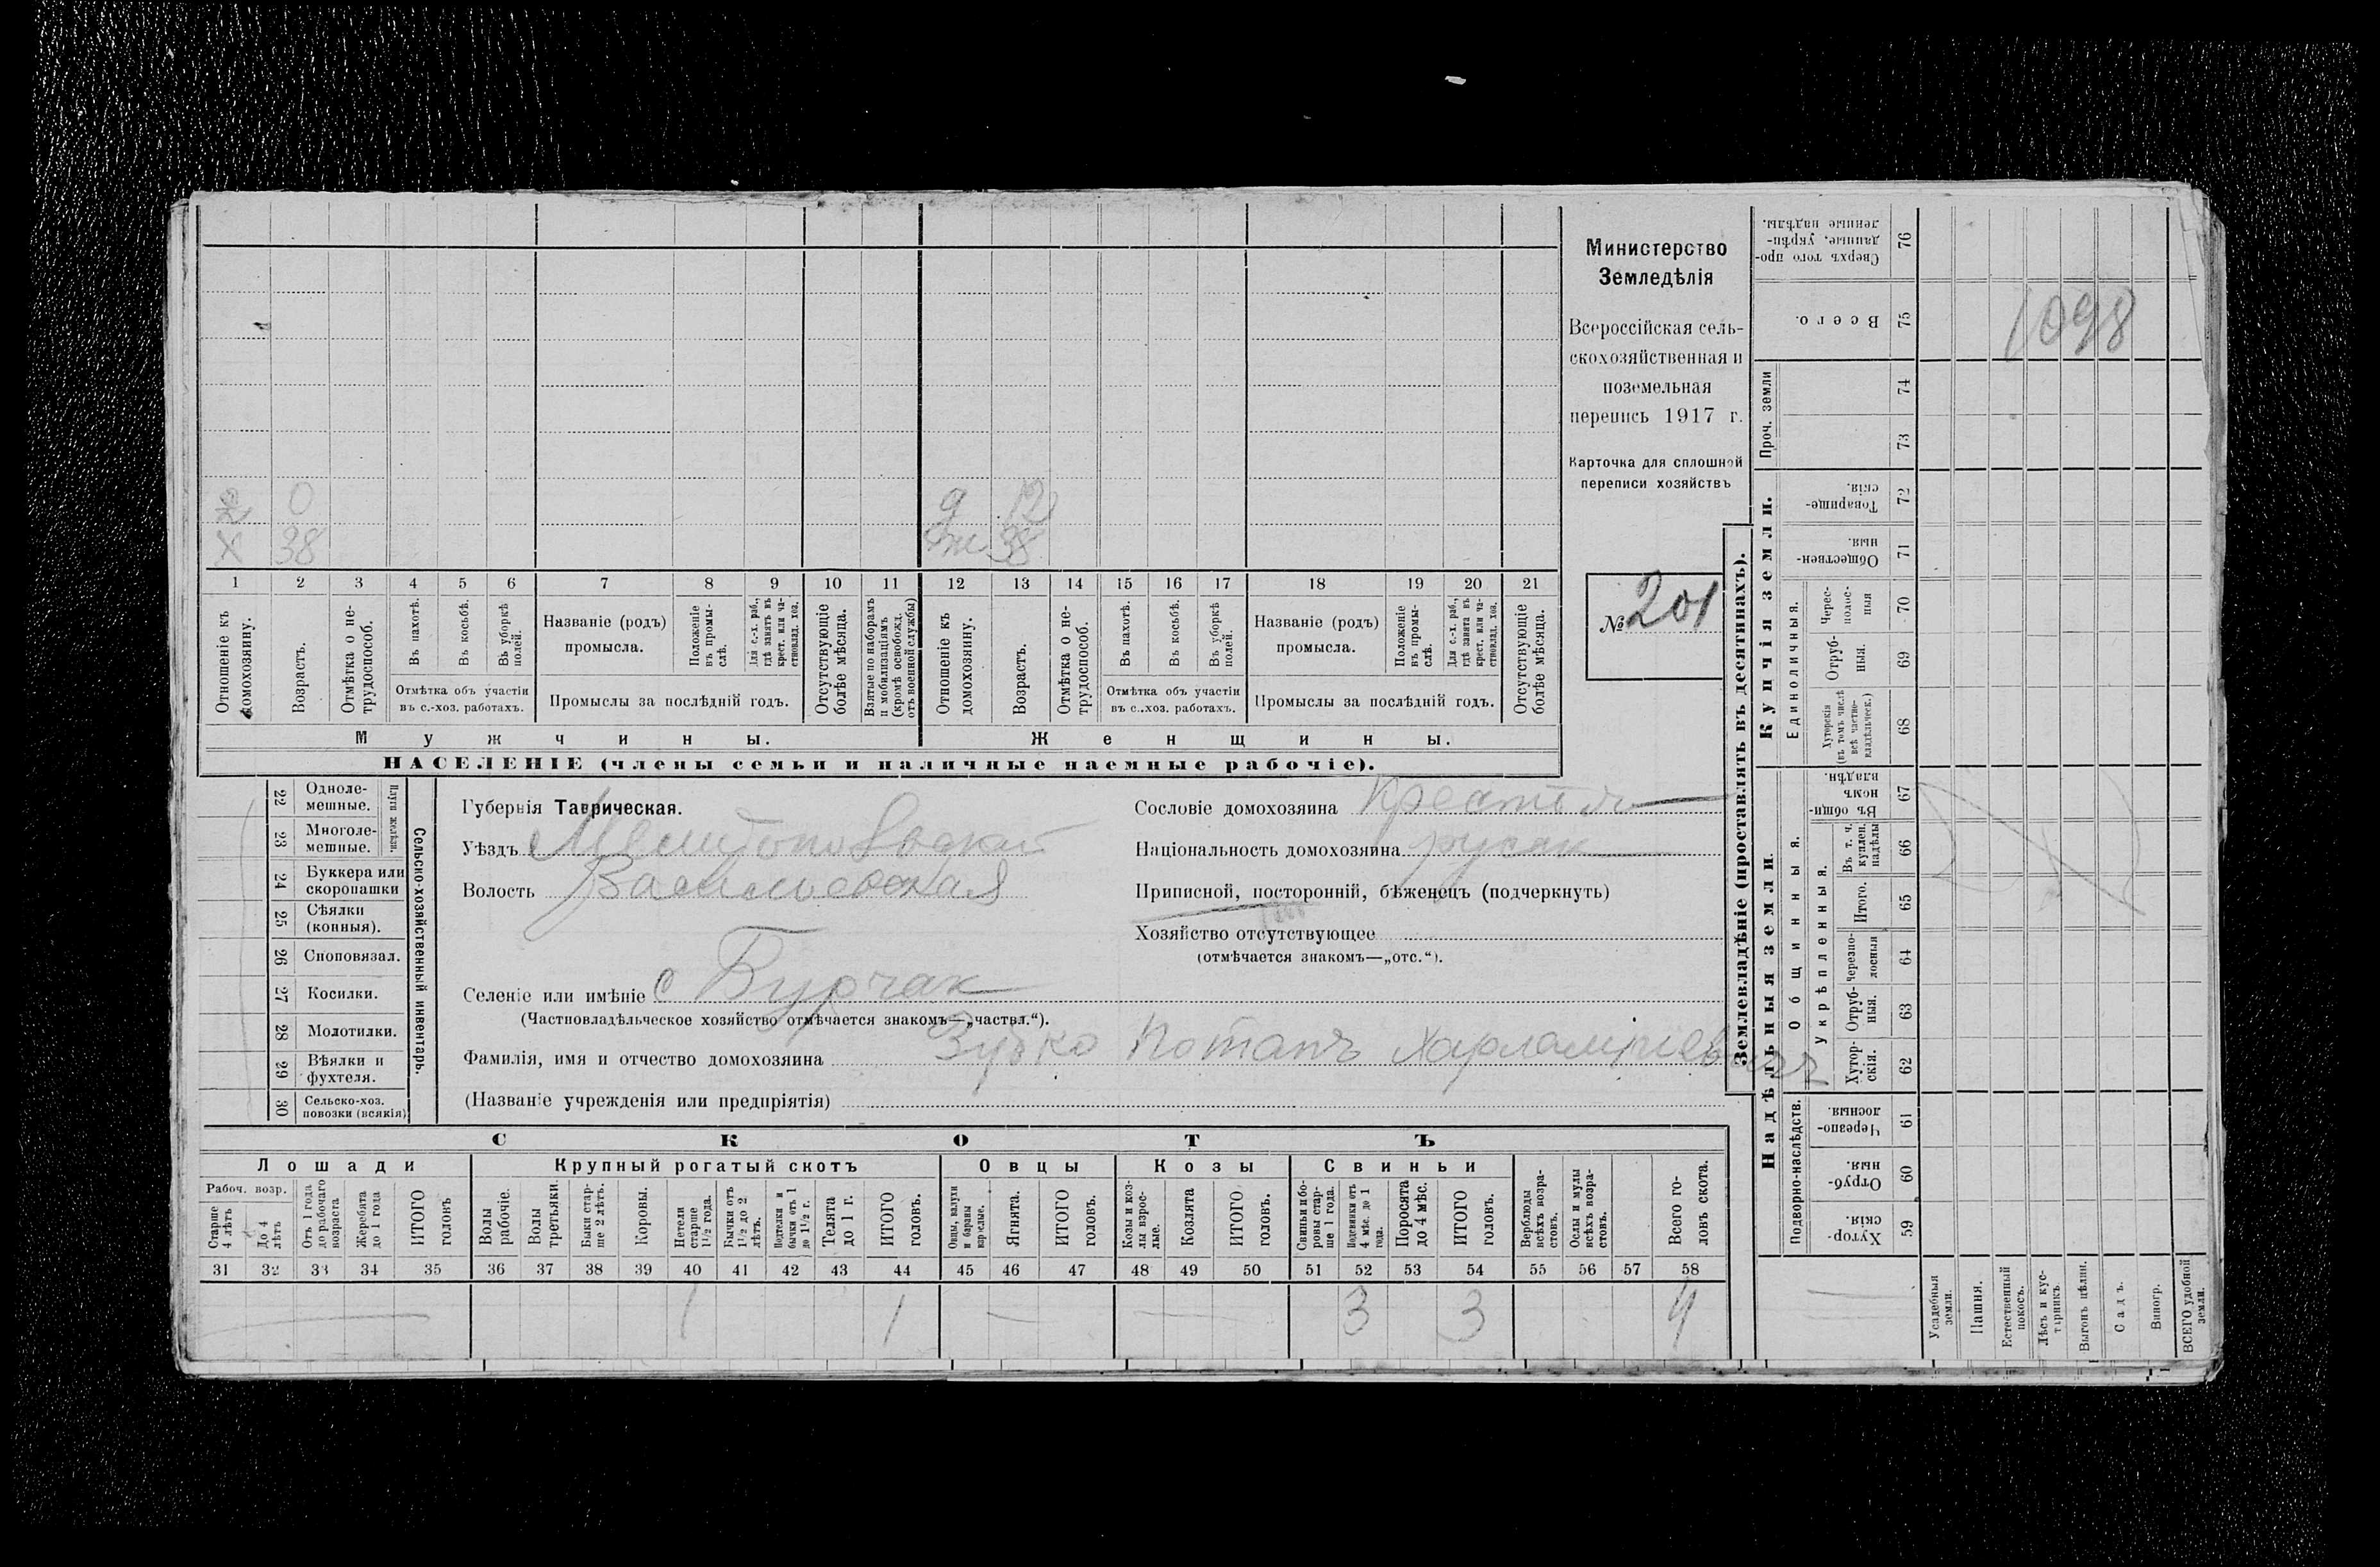 Министерство
Земледѣлія
Всероссійская сель-
скохозяйственная и
поземельная
перепись 1917 г.
Карточка для сплошной
переписи хозяйствъ
№ 201
1098
0
Х 38
д 12
ж 38
1 2 3 4 5 6 7 8 9 10 11 12 13 14 15 16 17 18 19 20 21
Отношеніе къ домохозяину.
Возрастъ.
Отмѣтка о не-трудоспособ.
Въ пахотѣ.
Въ косьбѣ.
Въ уборкѣ полей.
Отмѣтка объ участіи
въ с.-хоз. работахъ.
Названіе (родъ)
промысла.
Положеніе въ промы-слѣ.
Для с.-х. раб., гдѣ занятъ въ крест. или ча-стновлад. хоз.
Промыслы за послѣдній годъ.
Отсутствующіе болѣе мѣсяца.
Взятые по наборамъ и мобилизаціямъ (кромѣ освобожд. отъ военной службы)
Отношеніе къ домохозяину.
Возрастъ.
Отмѣтка о не-трудоспособ.
Въ пахотѣ.
Въ косьбѣ.
Въ уборкѣ полей.
Отмѣтка объ участіи
въ с.-хоз. работахъ.
Названіе (родъ)
промысла.
Положеніе въ промы-слѣ.
Для с.-х. раб., гдѣ занята въ крест. или ча-стновлад. хоз.
Промыслы за послѣдній годъ.
Отсутствующіе болѣе мѣсяца.
Мужчины. Женщины.
НАСЕЛЕНІЕ (члены семьи и наличные наемные рабочіе).
22 Одноле-мешные.
23 Многоле-мешные.
Плуги желѣзн.
24 Буккера или скоропашки
25 Сѣялки (конныя).
26 Сноповязал.
27 Косилки.
28 Молотилки.
29 Вѣялки и фухтеля.
30 Сельско-хоз. повозки (всякія)
Сельско-хозяйственный инвентарь.
Губернія Таврическая.
Уѣздъ Мелитопольскій
Волость Васильевская
Сословіе домохозяина крестян
Національность домохозяина русск
Приписной, посторонній, бѣженецъ (подчеркнуть)
Хозяйство отсутствующее
(отмѣчается знакомъ—„отс.“).
Селеніе или имѣніе с Бурчак
(Частновладѣльческое хозяйство отмѣчается знакомъ—„частвл.“).
Фамилія, имя и отчество домохозяина Зубко Потапъ Харлампіевичъ
(Названіе учрежденія или предпріятія)
СКОТЪ
Лошади Крупный рогатый скотъ Овцы Козы Свиньи
Рабоч. возр.
Старше 4 лѣтъ
До 4 лѣтъ
Отъ 1 года до рабочаго возраста
Жеребята до 1 года
ИТОГО головъ
Волы рабочіе.
Волы третьяки.
Быки стар-ше 2 лѣтъ.
Коровы.
Нетели старше 1½ года.
Бычки отъ 1½ до 2 лѣтъ.
Подтелки и бычки отъ 1 до 1½ г.
Телята до 1 г.
ИТОГО головъ.
Овцы, валухи и бараны взрослые.
Ягнята.
ИТОГО головъ.
Козы и коз-лы взрос-лые.
Козлята
ИТОГО головъ.
Свиньи и бо-ровы стар-ше 1 года.
Подсвинки отъ 4 мѣс. до 1 года.
Поросята до 4 мѣс.
ИТОГО головъ.
Верблюды всѣхъ возра-стовъ.
Ослы и мулы всѣхъ возра-стовъ.
Всего го-ловъ скота.
31 32 33 34 35 36 37 38 39 40 41 42 43 44 45 46 47 48 49 50 51 52 53 54 55 56 57 58
— 1 1 — — 3 3 4
Землевладѣніе (проставлять въ десятинахъ).
Сверхъ того про-данные, укрѣп-ленные надѣлы. 76
Всего. 75
Проч. земли 74
73
Купчія земли.
Товарище-скія. 72
Обществен-ныя. 71
Единоличныя.
Черес-полос-ныя 70
Отруб-ныя. 69
Хуторскія (въ томъ числѣ всѣ частно-владѣльческ.) 68
Надѣльныя земли.
Общинныя.
Въ общи-номъ владѣн. 67
Укрѣпленныя.
Въ т. ч. куплен. надѣлы 66
Итого. 65
Черезпо-лосныя 64
Отруб-ныя. 63
Хутор-скія. 62
Подворно-наслѣдств.
Черезпо-лосныя. 61
Отруб-ныя. 60
Хутор-скія. 59
Усадебныя земли.
Пашня.
Естественный покосъ.
Лѣсъ и кус-тарникъ.
Выгонъ цѣлин.
Садъ.
Виногр.
ВСЕГО удобной земли.